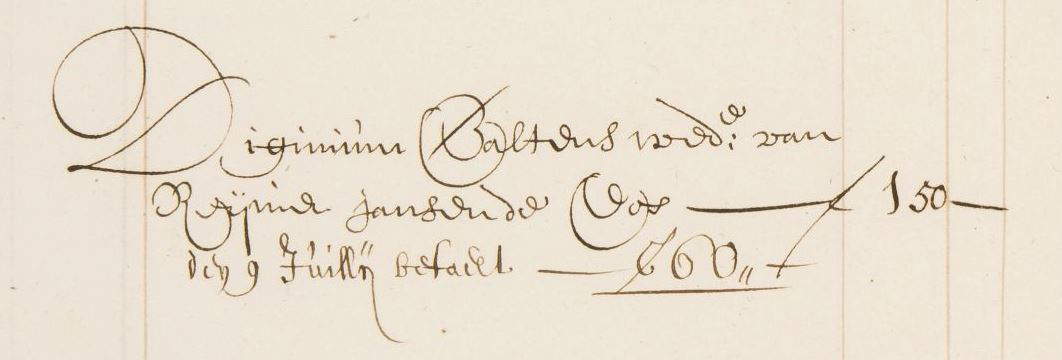 Diginium Baltens wed:e van
Reijnier Jansen de Vos — f 150 —
den 9 Juillij betaelt — f 60,,